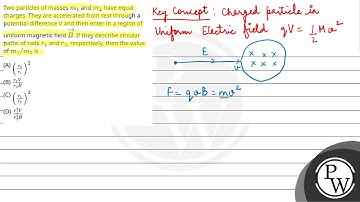 Two particles of masses m₁ and m₂ have equal
charges. They are accelerated from rest through a
potential difference V and then enter in a region of
uniform magnetic field B⃗. If they describe circular
paths of radii r₁ and r₂, respectively, then the value
of m₁/m₂ is
(A) (r₁/r₂)²
(B)
(C)
(D)
Key Concept: Charged particle in
Uniform Electric field qV = 1/2 Mv²
E
x x x x
v
x x x
F = qvB = mv²
P
W